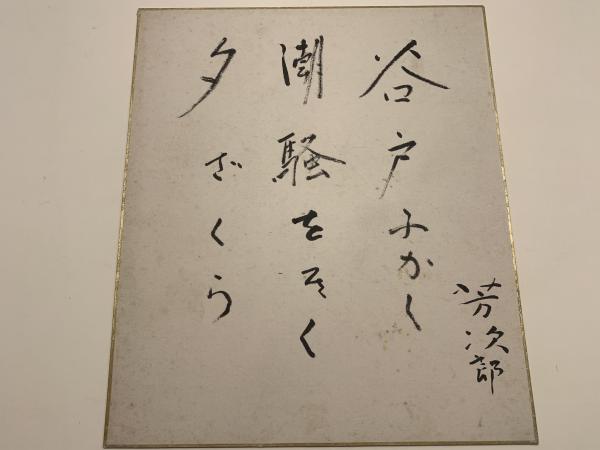 谷戸ふかく
潮騒をきく
夕ざくら
芳次郎